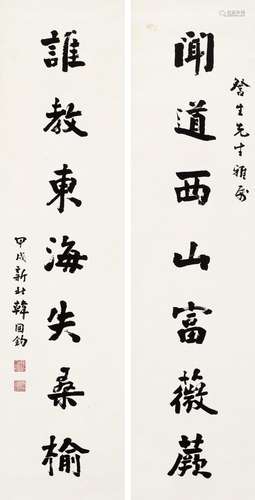 誉生先生雅属
闻道西山富薇蕨
誰教東海失桑榆
甲戌新秋韓国鈞